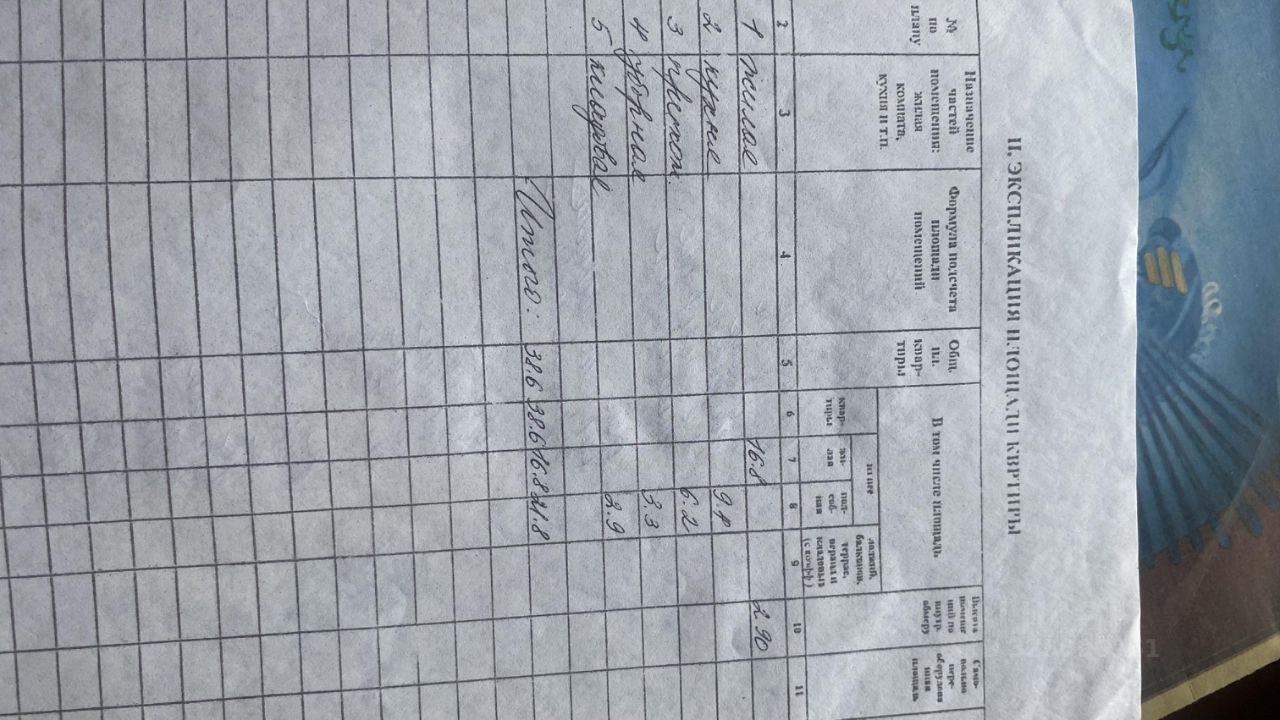 II. ЭКСПЛИКАЦИЯ ПЛОЩАДИ КВРТИРЫ
№ по плану
Назначение частей помещения: жилая комната, кухня и т.п.
Формула подсчета площади помещений
Общ. пл. квартиры
В том числе площадь
квартиры
из нее
жилая
подсобная
лоджий, балконов, террас, веранд и кладовых (с коэфф)
Высота помещений по внутр. обмеру
Самовольно переоборудованная площадь
2 3 4 5 6 7 8 9 10 11
1 жилая 16.8 2.90
2 кухня 9.4
3 прихож. 6.2
4 уборная 3.3
5 кладовая 2.9
Итого: 38.6 38.6 16.8 21.8